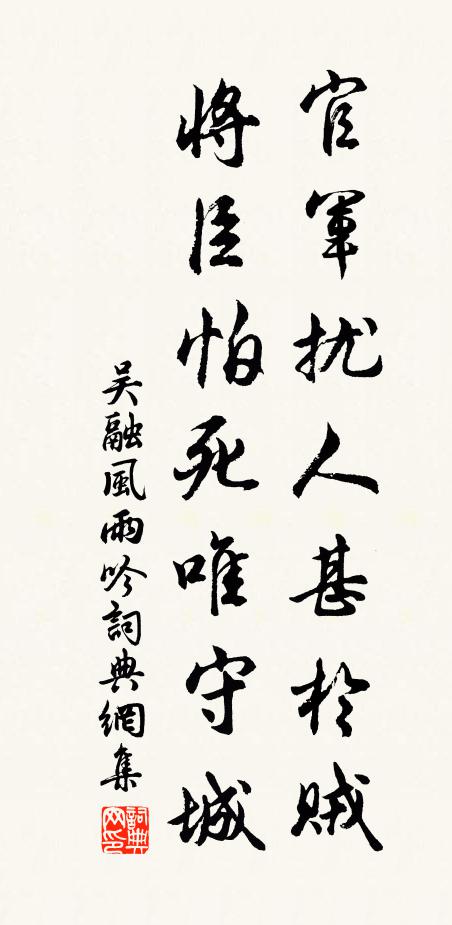 官軍扰人甚於賊
將臣怕死唯守城
吴融風雨吟詞典網集
詞典网印